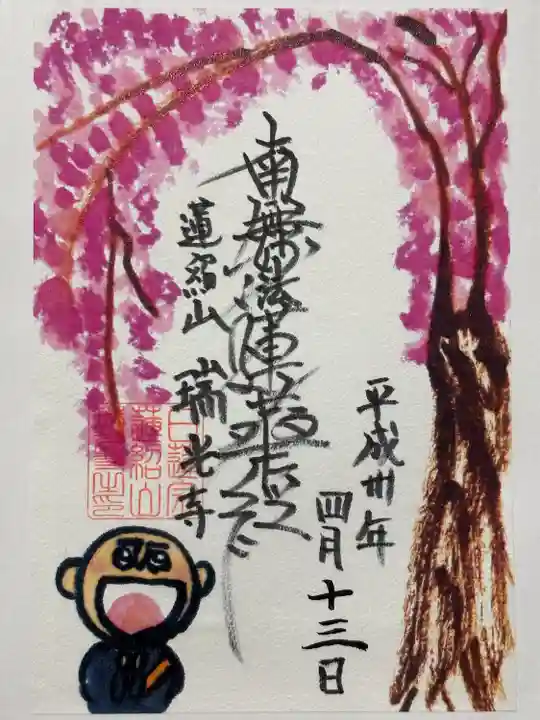 平成卅年
四月十三日
南無妙法蓮華経
蓮紹山 瑞光寺
蓮紹山